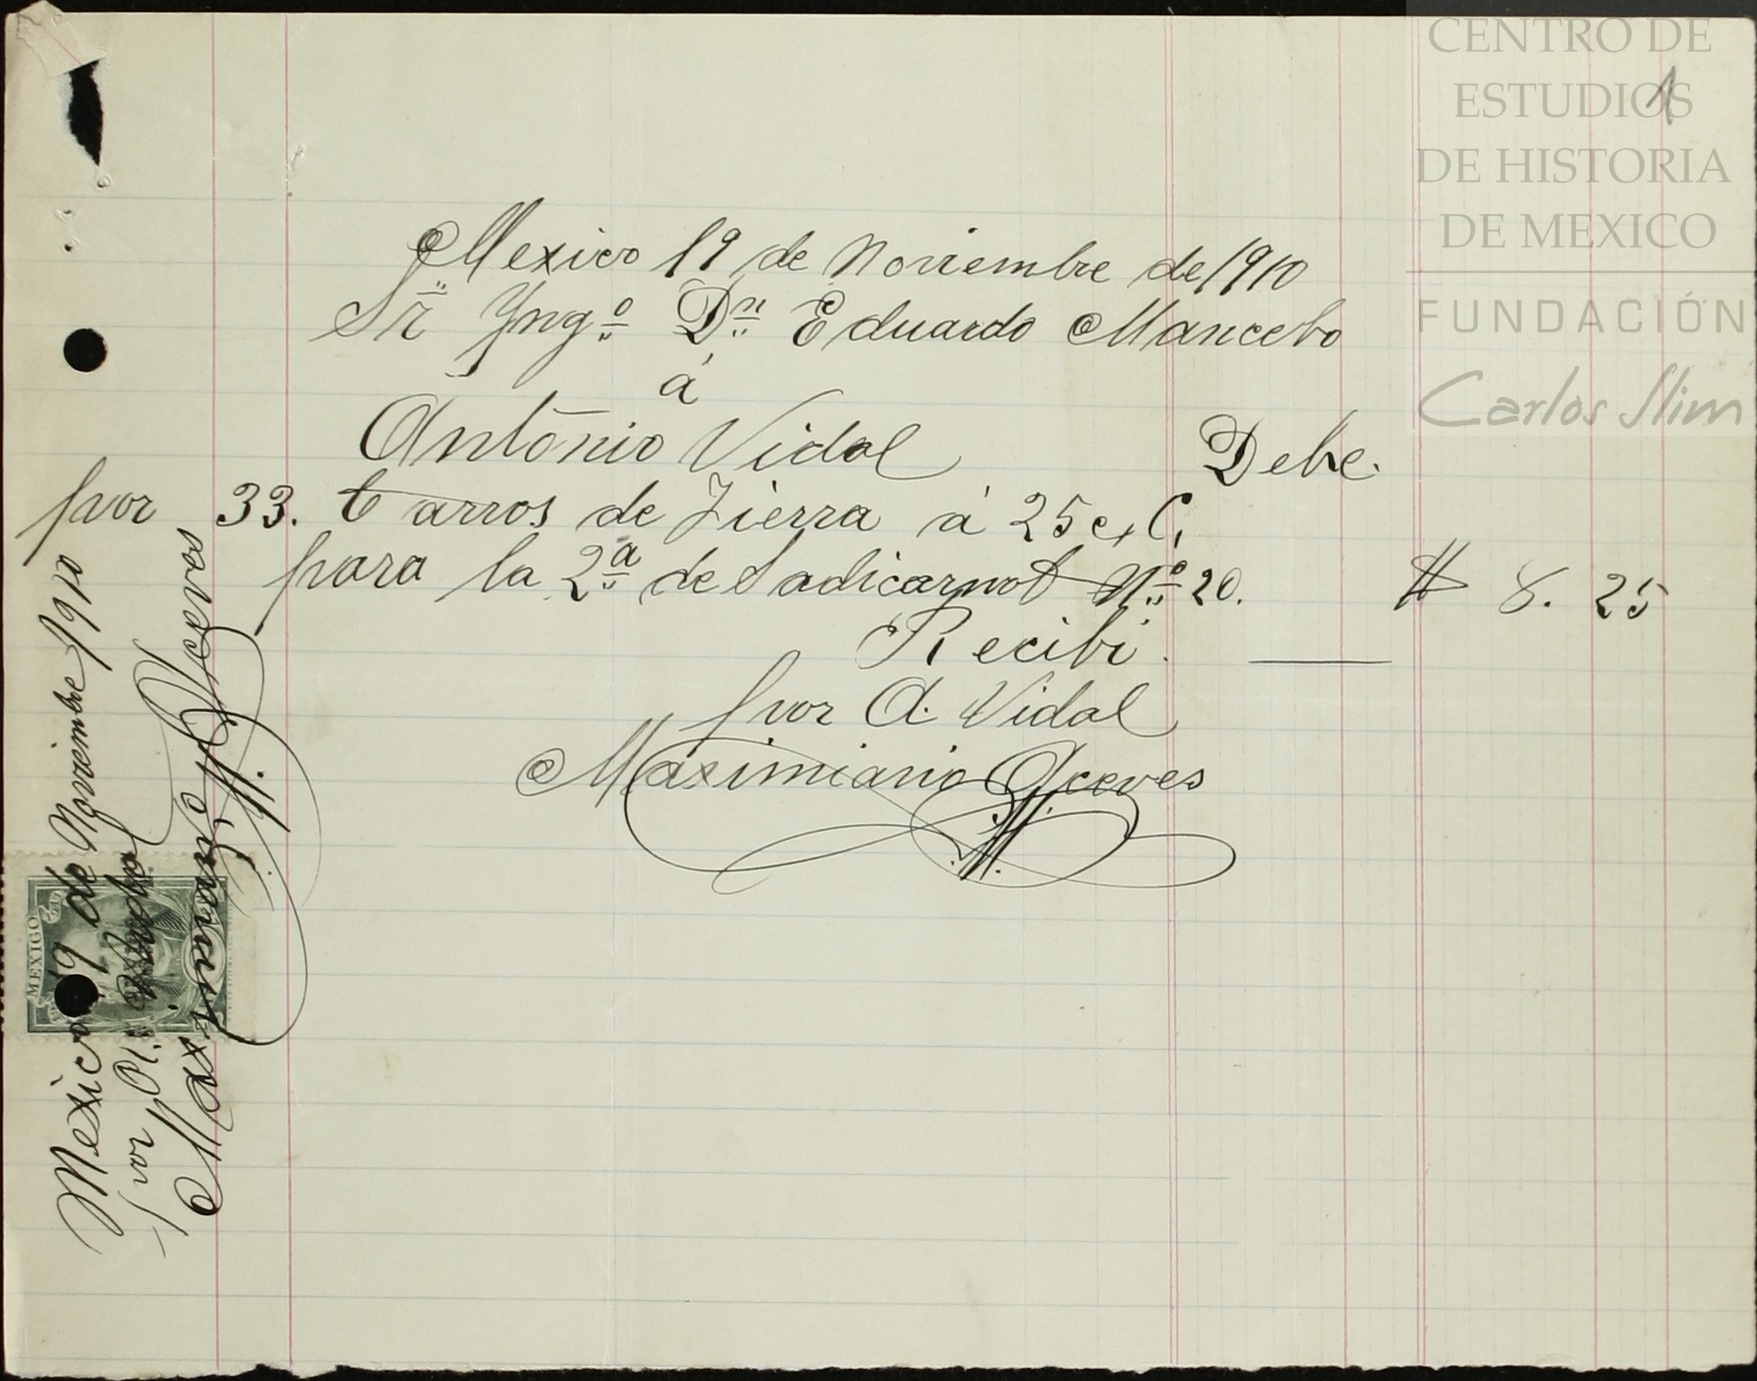 CENTRO DE
ESTUDIOS
DE HISTORIA
DE MEXICO
FUNDACIÓN
Carlos Slim
1
Mexico 19 de Noviembre de 1910
Sr Yngo Dn Eduardo Mancebo
á
Antonio Vidal Debe.
por 33. Carros de Tierra á 25 c, C,
para la 2a de Sadicarnot No 20. $ 8.25
Recibi.
por A. Vidal
Maximiano Aceves
Mexico 19 de Noviembre 1910
por A.
Maximiano Aceves
MEXICO